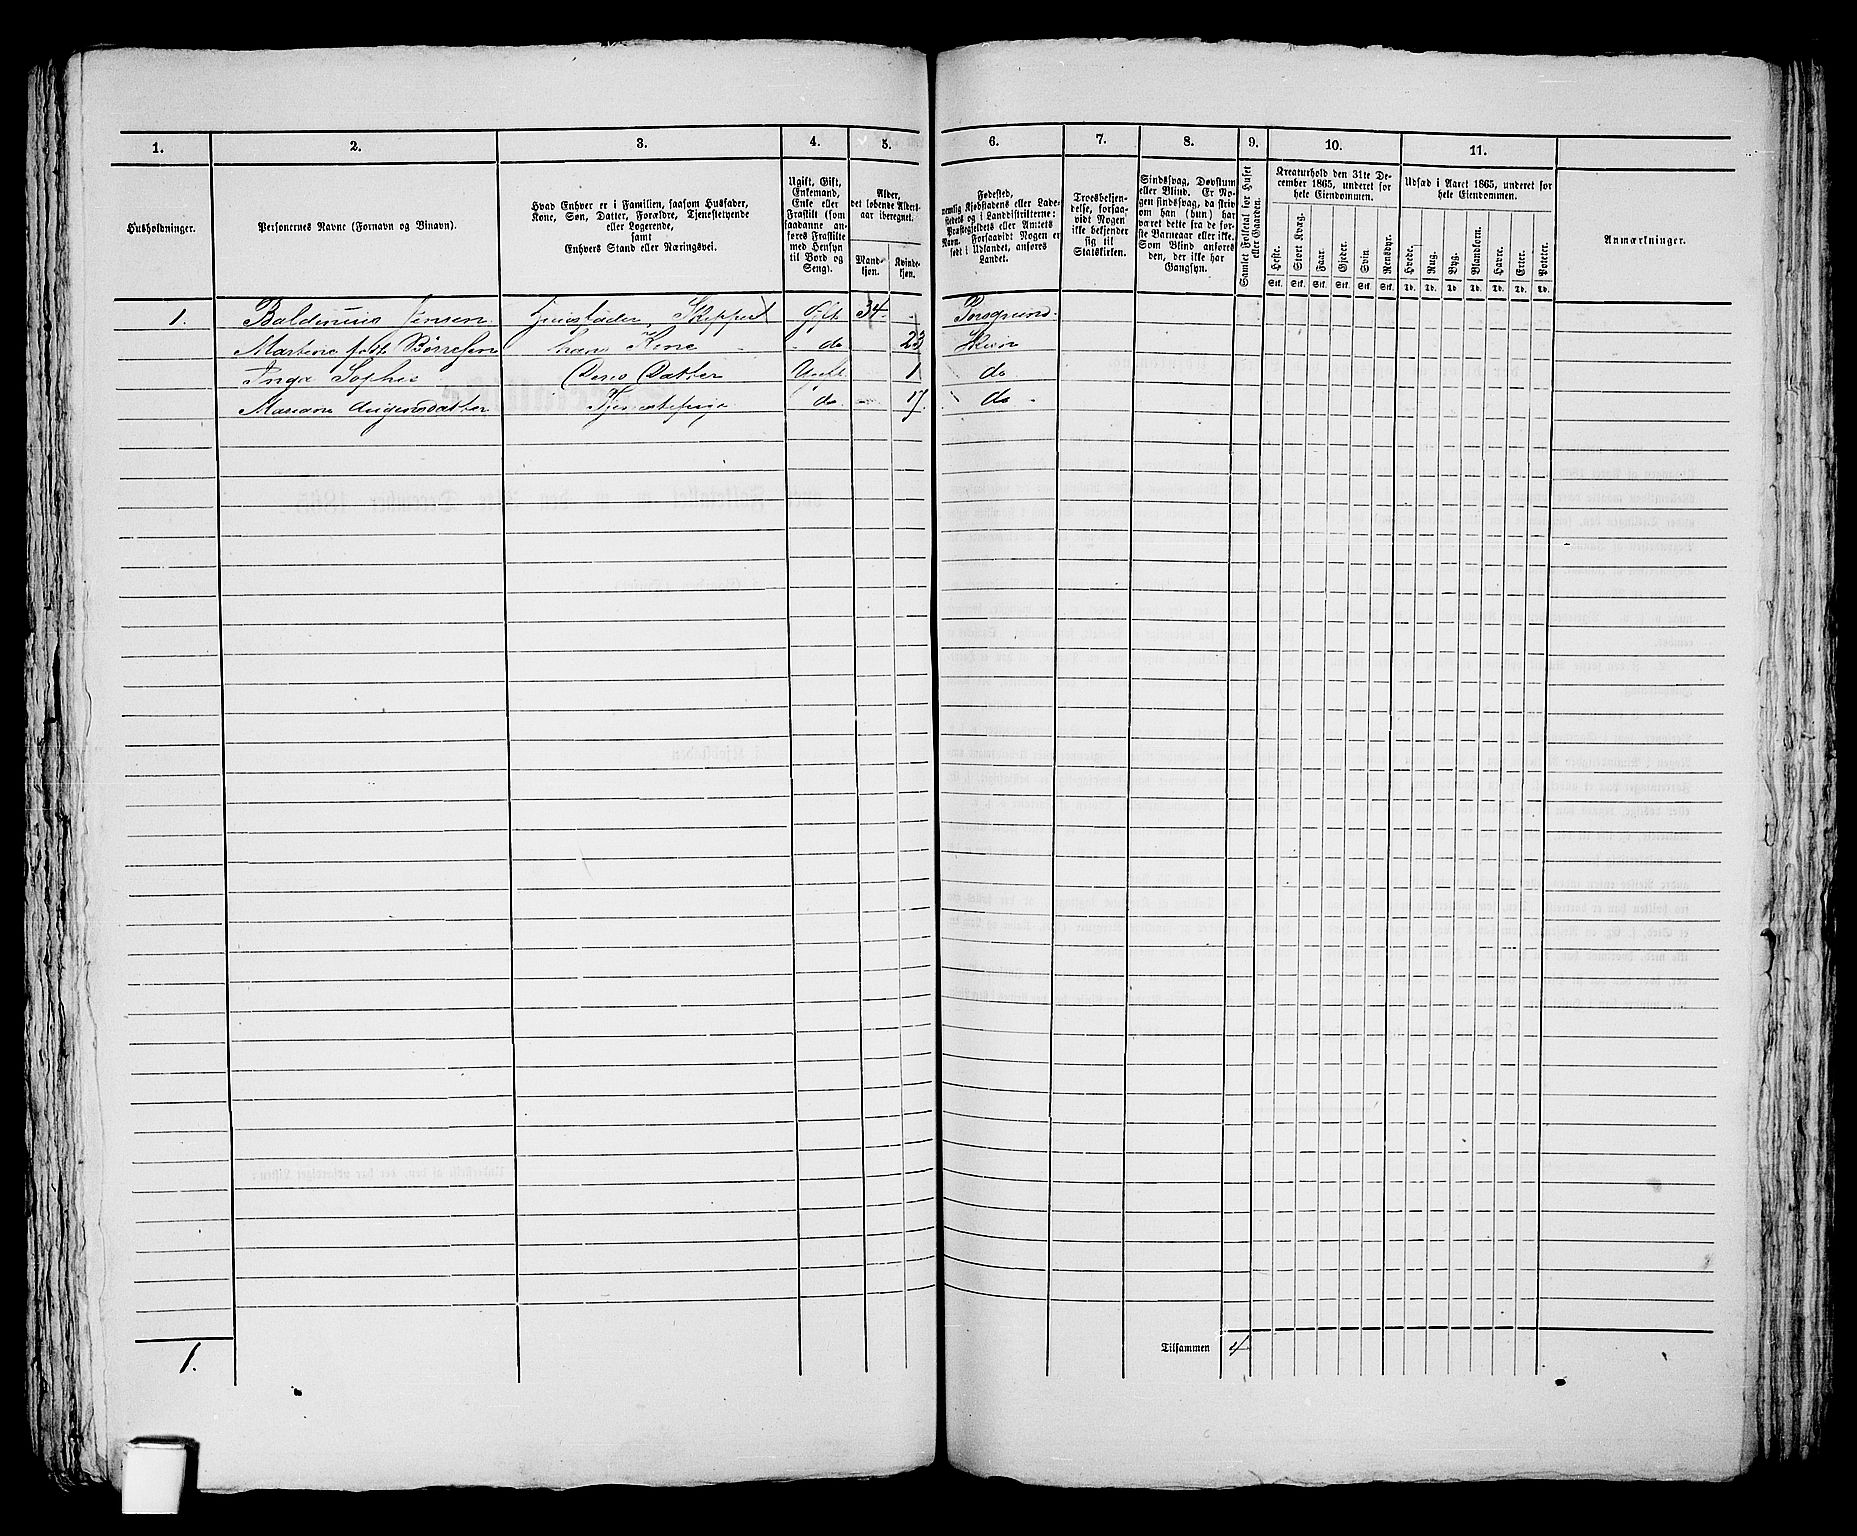 1. 2. 3. 4. 5. 6. 7. 8. 9. 10. 11.
Husholdninger.
Personernes Navne (Fornavn og Binavn).
Hvad Enhver er i Familien, saasom Husfader,
Kone, Søn, Datter, Forældre, Tjenestetyende
eller Logerende,
samt
Enhvers Stand eller Næringsvei.
Ugift, Gift,
Enkemand,
Enke eller
Fraskilt (som
saadanne an-
føres Fraskilte
med Hensyn
til Bord og
Seng).
Alder,
det løbende Alders-
aar iberegnet.
Mand-
kjøn.
Kvinde-
kjøn.
Fødested,
nemlig Kjøbstadens eller Lade-
stedets og i Landdistrikterne:
Præstegjeldets eller Amtets
Navn. Forsaavidt Nogen er
født i Udlandet, anføres
Landet.
Troesbekjen-
delse, forsaa-
vidt Nogen
ikke bekjender
sig til
Statskirken.
Sindssvag, Døvstum
eller Blind. Er No-
gen sindssvag, da skriv
om han (hun) har
været dette fra de før-
ste Barneaar eller ikke.
Som Blind anføres
den, der ikke har
Gangsyn.
Samlet Folketal for Huset
eller Gaarden.
Kreaturhold den 31te De-
cember 1865, underet for
hele Eiendommen.
Heste. Stort Kvæg. Faar. Gjeder. Svin Rensdyr.
Stk. Stk. Stk. Stk. Stk. Stk.
Udsæd i Aaret 1865, underet for
hele Eiendommen.
Hvede. Rug. Byg. Blandkorn. Havre. Erter. Poteter.
Td. Td. Td. Td. Td. Td. Td.
Anmærkninger.
1. Baldenius Jensen Huusfader, Skipper Gift 34 - Porsgrund
Martine født Børresen hans Kone - do 23 Skien
Inga Sophie Deres Datter Ugift 1 do
Mariane Tjenestepige do - 17 do -
1.
Tilsammen 4